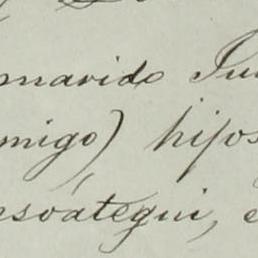 marido Ju
migo) hijos
nsoátegui, e